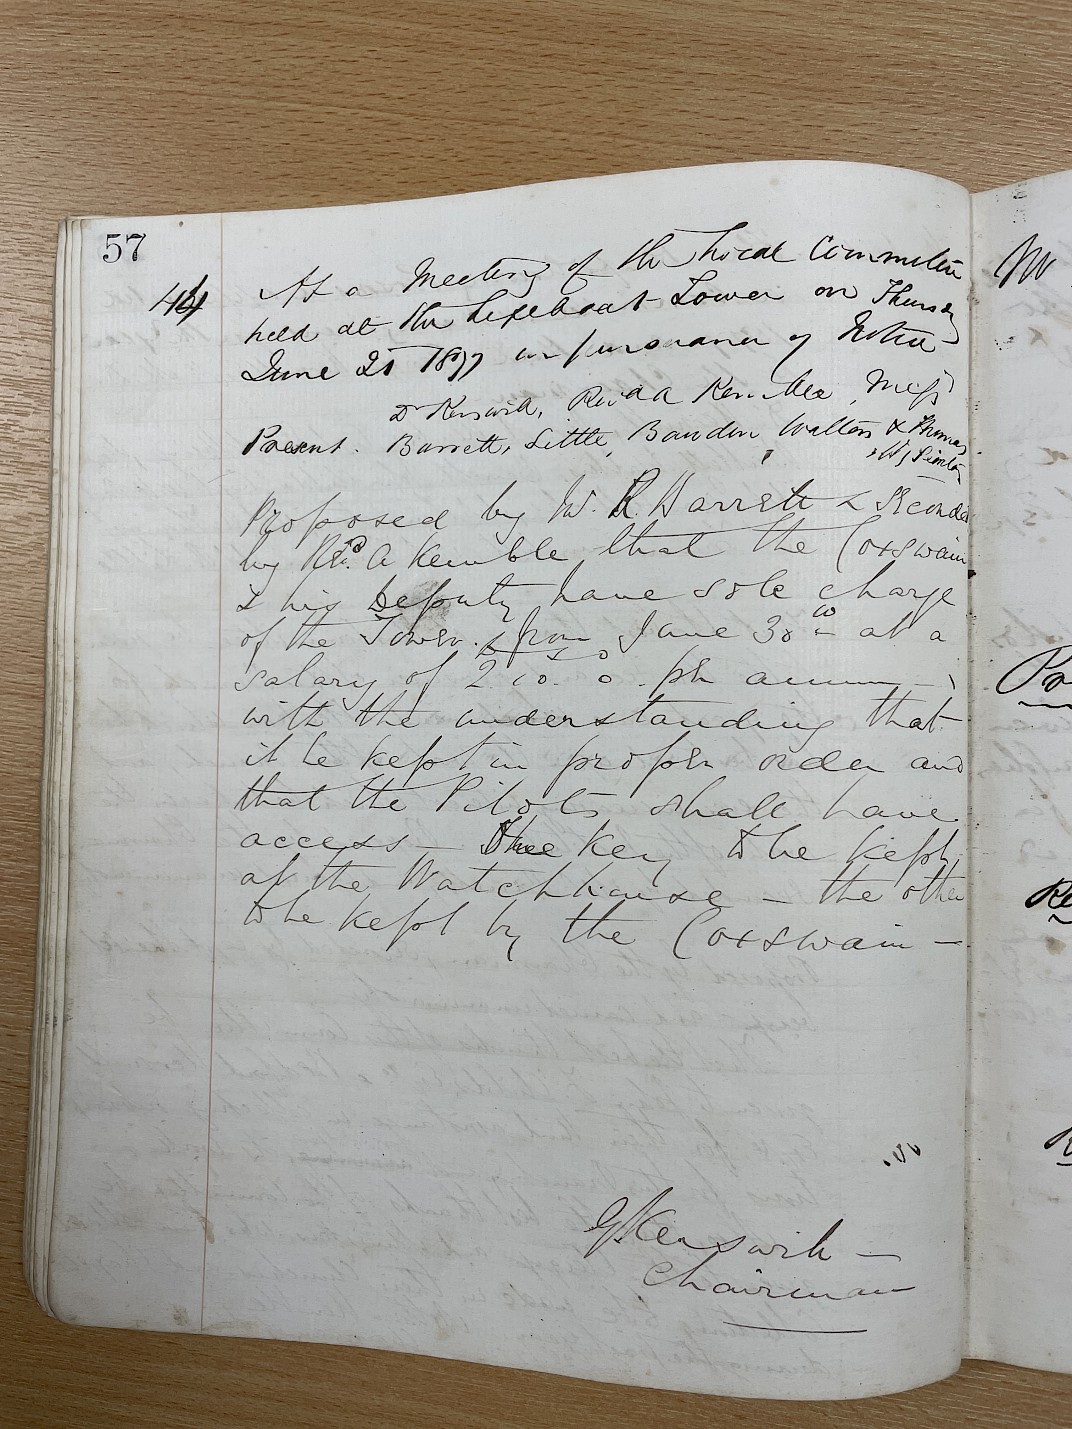 57
44
At a Meeting of the Local Committee
held at the Lifeboat Tower on Thursday
June 21 1877 in pursuance of Notice
Dr Kenswick, Revd A Kemble, Messrs
Present. Barrett, Little, Bawden, Walters & Thomas
Proposed by W. R. Barrett & Seconded
by Revd. A Kemble that the Coxswain
& his Deputy have sole charge
of the Tower from June 30 at a
salary of £2. 10. 0. per annum -
with the understanding that
it be kept in proper order and
that the Pilots shall have
access - One Key to be kept
at the Watchhouse - the other
to be kept by the Coxswain -
G. Kenswick -
Chairman